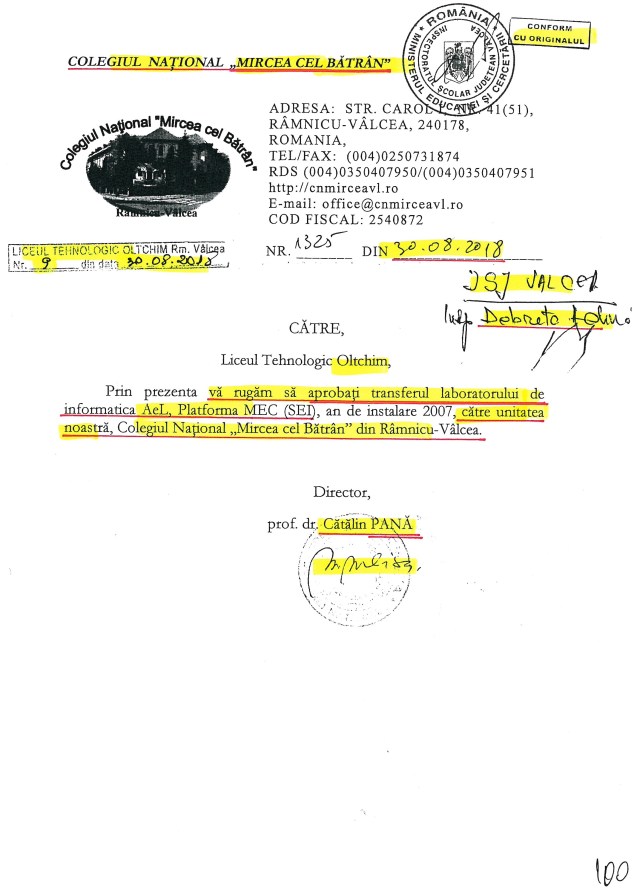 COLEGIUL NAŢIONAL „MIRCEA CEL BĂTRÂN”
* ROMÂNIA * MINISTERUL EDUCAŢIEI ŞI CERCETĂRII
INSPECTORATUL ŞCOLAR JUDEŢEAN VÂLCEA
CONFORM
CU ORIGINALUL
Colegiul Naţional "Mircea cel Bătrân"
Râmnicu-Vâlcea
ADRESA: STR. CAROL I, NR. 41(51),
RÂMNICU-VÂLCEA, 240178,
ROMANIA,
TEL/FAX: (004)0250731874
RDS (004)0350407950/(004)0350407951
http://cnmirceavl.ro
E-mail: office@cnmirceavl.ro
COD FISCAL: 2540872
LICEUL TEHNOLOGIC OLTCHIM Rm. Vâlcea
Nr. 9 din data 30.08.2018
NR. 1325 DIN 30.08.2018
ISJ VALCEA
Insp
CĂTRE,
Liceul Tehnologic Oltchim,
Prin prezenta vă rugăm să aprobaţi transferul laboratorului de
informatica AeL, Platforma MEC (SEI), an de instalare 2007, către unitatea
noastră, Colegiul Naţional „Mircea cel Bătrân” din Râmnicu-Vâlcea.
Director,
prof. dr. Cătălin PANĂ
100